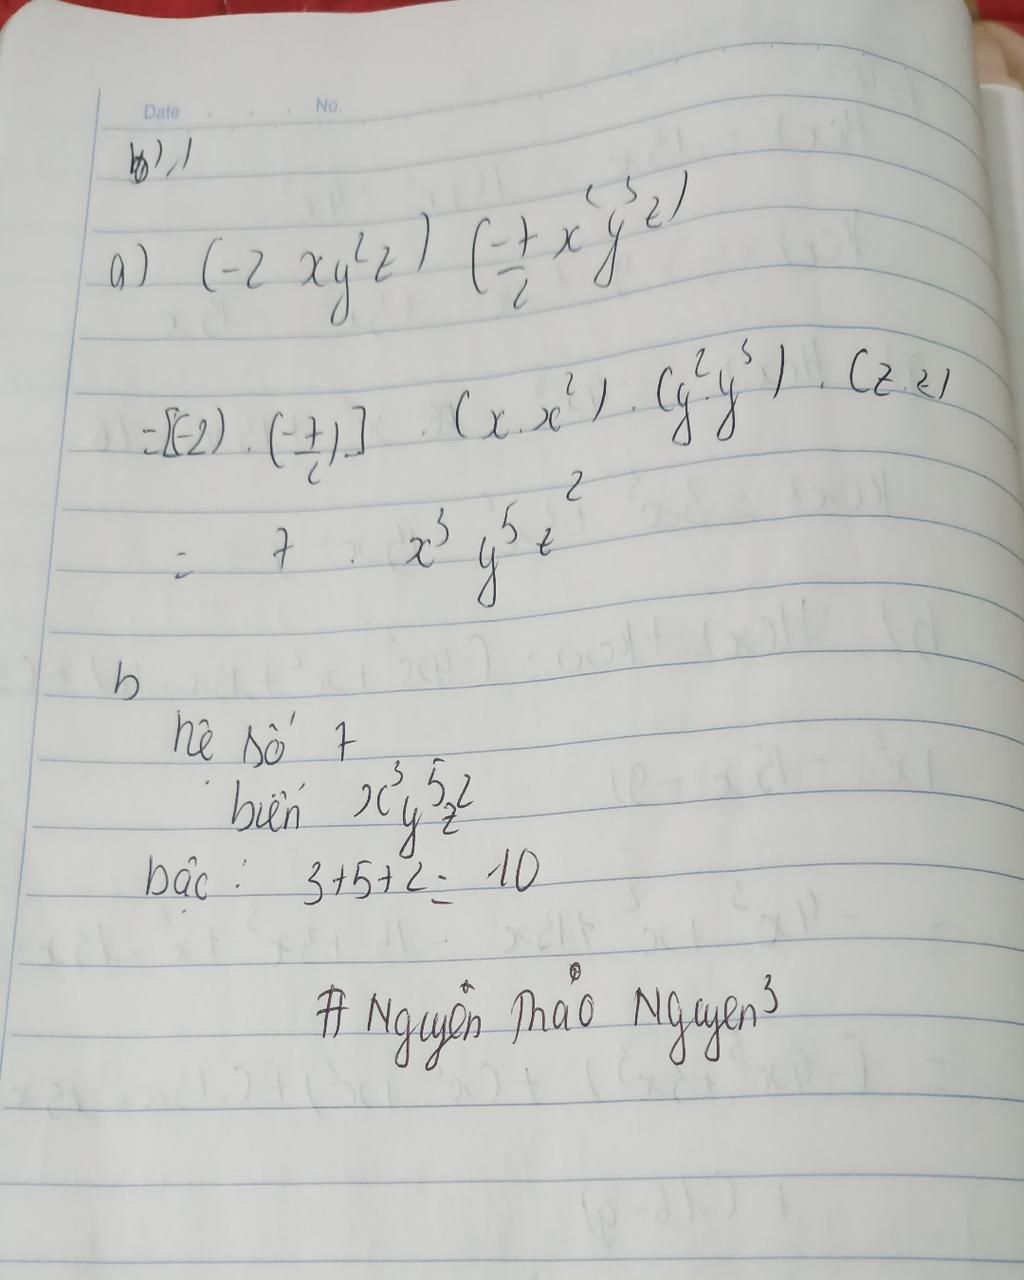 Date No.
b),1
a) (-2 xy²z) (-7/2 x²y³z)
=[(-2) . (-7/2)] . (x.x²) . (y².y³) . (z.z)
= 7 . x³ y⁵ z²
b
hệ số 7
biến x³y⁵z²
bậc : 3+5+2= 10
# Nguyễn Thảo Nguyen³